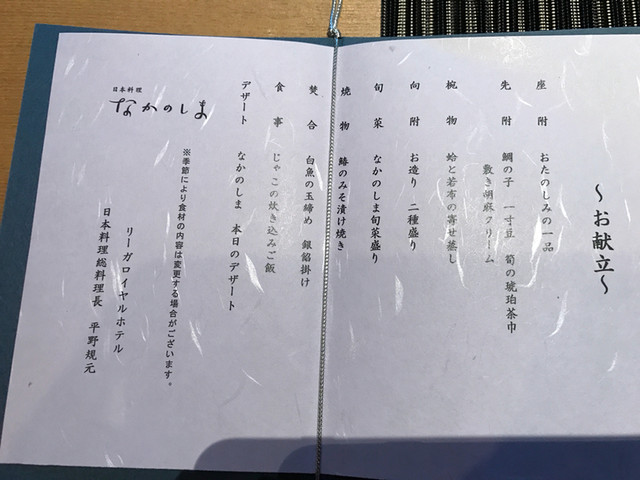 ～お献立～
座附　おたのしみの一品
先附　鯛の子　一寸豆　筍の琥珀茶巾
敷き胡麻クリーム
椀物　蛤と若布の寄せ蒸し
向附　お造り　二種盛り
旬菜　なかのしま旬菜盛り
焼物　鰆のみそ漬け焼き
焚合　白魚の玉締め　銀餡掛け
食事　じゃこの炊き込みご飯
デザート　なかのしま　本日のデザート
※季節により食材の内容は変更する場合がございます。
日本料理
なかのしま
リーガロイヤルホテル
日本料理総料理長　平野規元